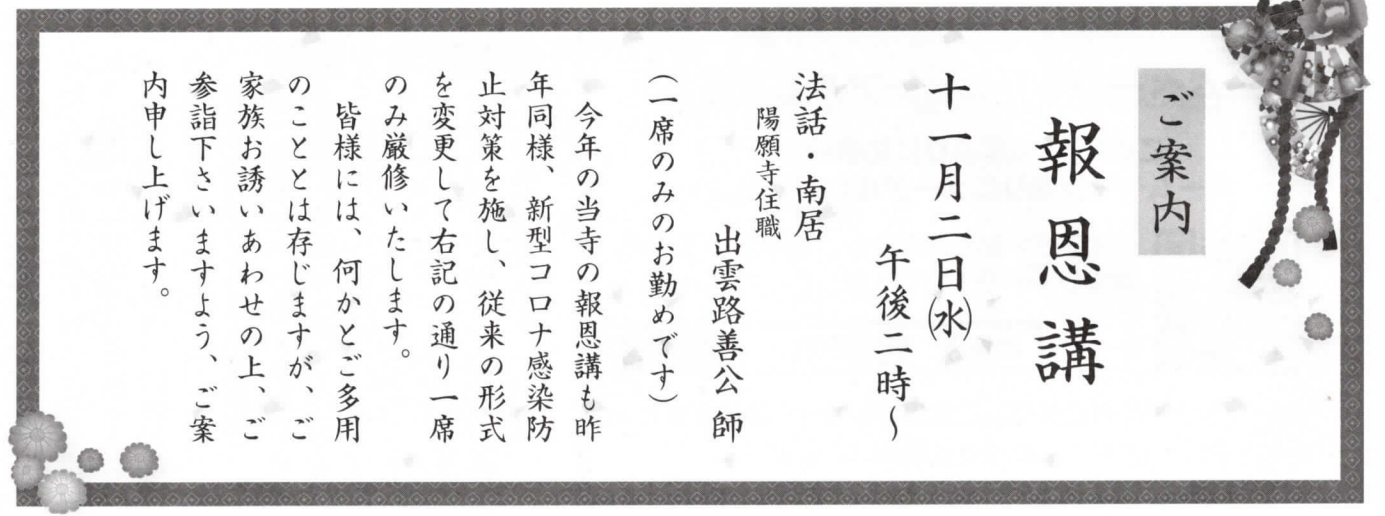 ご案内
報恩講
十一月二日㈬
午後二時～
法話・南居
陽願寺住職
出雲路善公 師
（一席のみのお勤めです）
今年の当寺の報恩講も昨
年同様、新型コロナ感染防
止対策を施し、従来の形式
を変更して右記の通り一席
のみ厳修いたします。
皆様には、何かとご多用
のこととは存じますが、ご
家族お誘いあわせの上、ご
参詣下さいますよう、ご案
内申し上げます。